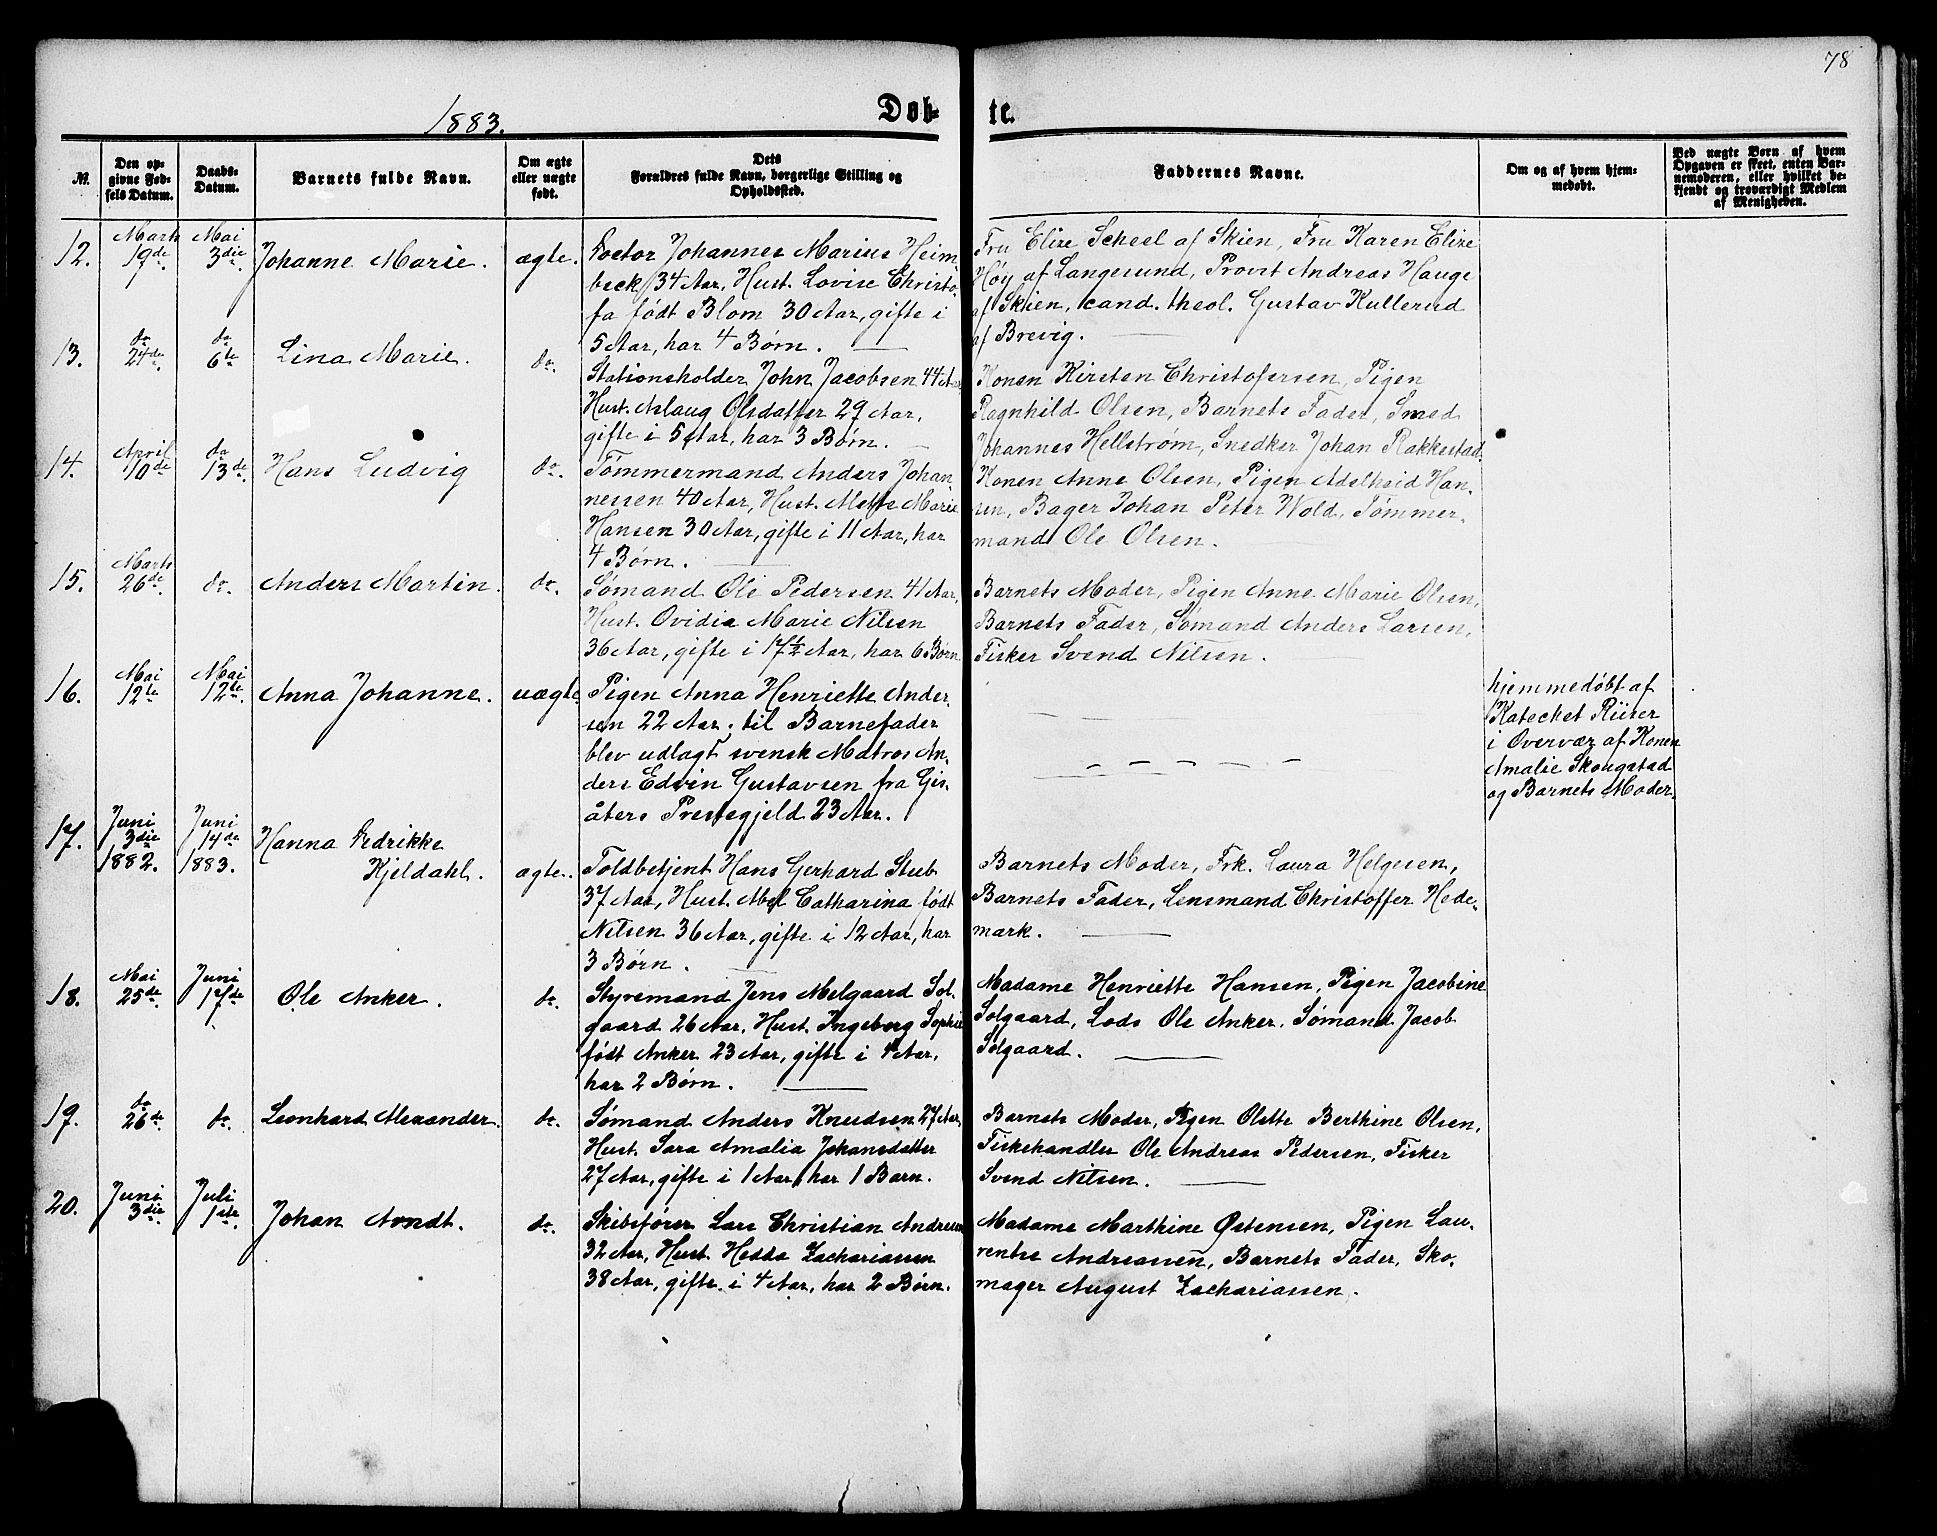 78
1883.
Døb-
te.
№.
Den op-
givne Fød-
sels Datum.
Daabs-
Datum.
Barnets fulde Navn.
Om ægte
eller uægte
født.
Dets
Forældres fulde Navn, borgerlige Stilling og
Opholdssted.
Faddernes Navne.
Om og af hvem hjem-
medøbt.
Ved uægte Børn af hvem
Opgaven er skeet, enten Bar-
nemoderen, eller hvilket be-
kjendt og troværdigt Medlem
af Menigheden.
12.
Marts
19de
Mai
3die.
Johanne Marie.
ægte.
Doctor Johannes Marius Heim-
beck 34 Aar, Hust. Lovise Christo-
fa født Blom 30 Aar, gifte i
5 Aar, har 4 Børn.
Fru Elise Scheel af Skien, Fru Karen Elise
Høy af Langesund, Provst Andreas Hauge
af Skien, cand. theol. Gustav Kullerud
af Brevig.
13.
do
24de.
do
6te
Lina Marie.
do.
Stationsholder John Jacobsen 44 Aar,
Hust. Aslaug Olsdatter 29 Aar,
gifte i 5 Aar, har 3 Børn.
Konen Kirsten Christofersen, Pigen
Ragnhild Olsen, Barnets Fader, Smed
Johannes Hellstrøm, Snedker Johan Rakkestad.
14.
April
10de
do
13de.
Hans Ludvig
do.
Tømmermand Anders Johan-
nessen 40 Aar, Hust. Mette Marie
Hansen 30 Aar, gifte i 11 Aar, har
4 Børn.
Konen Anne Olsen, Pigen Adelheid Han-
sen, Bager Johan Peter Wold, Tømmer-
mand Ole Olsen.
15.
Marts
26de.
do.
Anders Martin.
do.
Sømand Ole Pedersen 41 Aar,
Hust. Ovidia Marie Nilsen
36 Aar, gifte i 17½ Aar, har 6 Børn
Barnets Moder, Pigen Anne Marie Olsen,
Barnets Fader, Sømand Anders Larsen,
Fisker Svend Nilsen.
16.
Mai
12te
Mai
12te.
Anna Johanne.
uægte.
Pigen Anna Henriette Ander-
sen 22 Aar; til Barnefader
blev udlagt svensk Matros An-
ders Edvin Gustavsen fra Gis-
åters Prestegjeld 23 Aar.
hjemmedøbt af
Kateket Riiser
i Overvær af Konen
Amalie Skougstad
og Barnets Moder.
17.
Juni
3die
1882.
Juni
14de
1883.
Hanna Fredrikke
Kjeldahl.
ægte.
Toldbetjent Hans Gerhard Stub
37 Aar, Hust. Abel Catharina født
Nilsen 36 Aar, gifte i 12 Aar, har
3 Børn.
Barnets Moder, Frk. Laura Helgesen,
Barnets Fader, Lensmand Christoffer Hede-
mark.
18.
Mai
25de.
Juni
17de
Ole Anker.
do.
Styremand Jens Melgaard Sol-
gaard 26 Aar, Hust. Ingeborg Sophie
født Anker 23 Aar, gifte i 4 Aar,
har 2 Børn.
Madame Henriette Hansen, Pigen Jacobine
Solgaard, Lods Ole Anker, Sømand Jacob
Solgaard.
19.
do
26de.
do.
Leonhard Alexander.
do.
Sømand Anders Knudsen 27 Aar,
Hust. Sara Amalia Johansdatter
27 Aar, gifte i 1 Aar, har 1 Barn.
Barnets Moder, Pigen Olette Berthine Olsen,
Fiskehandler Ole Andreas Pedersen, Fisker
Svend Nilsen.
20.
Juni
3die.
Juli
1ste.
Johan Arndt.
do.
Skibsfører Lars Christian Andresen
32 Aar, Hust. Hedda Zachariassen
38 Aar, gifte i 4 Aar, har 2 Børn.
Madame Marthine Østensen, Pigen Lau-
rentse Andreassen, Barnets Fader, Sko-
mager August Zachariassen.